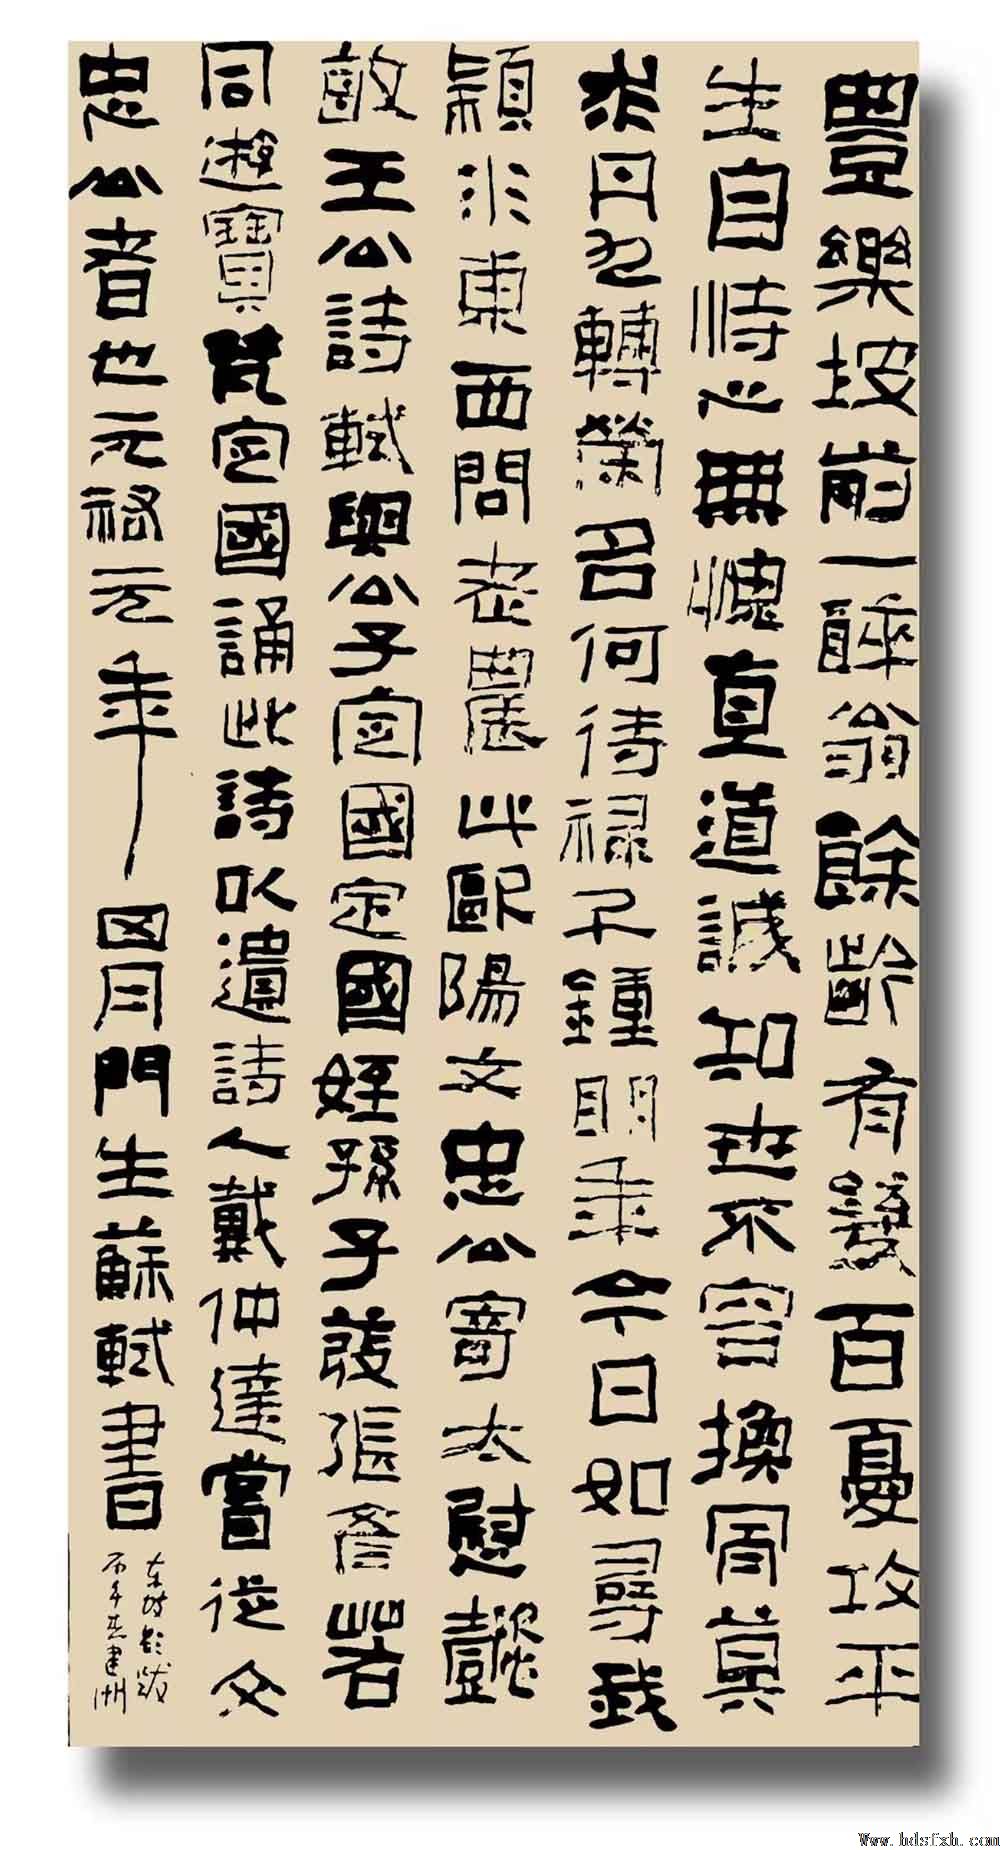 豐樂坡前一醉翁餘齡有幾百憂攻平
生自恃心無愧直道誠知世不容換骨莫
求丹九轉榮名何待祿千鍾明年今日如尋我
潁水東西問老農此歐陽文忠公寄太慰懿
敏王公詩軾與公子定國定國姪孫子發張彥若
同遊寶梵定國誦此詩以遺詩人戴仲達嘗從文
忠公者也元祐元年四月門生蘇軾書
东坡题跋
丙午建洲
Www.hdsfxh.com